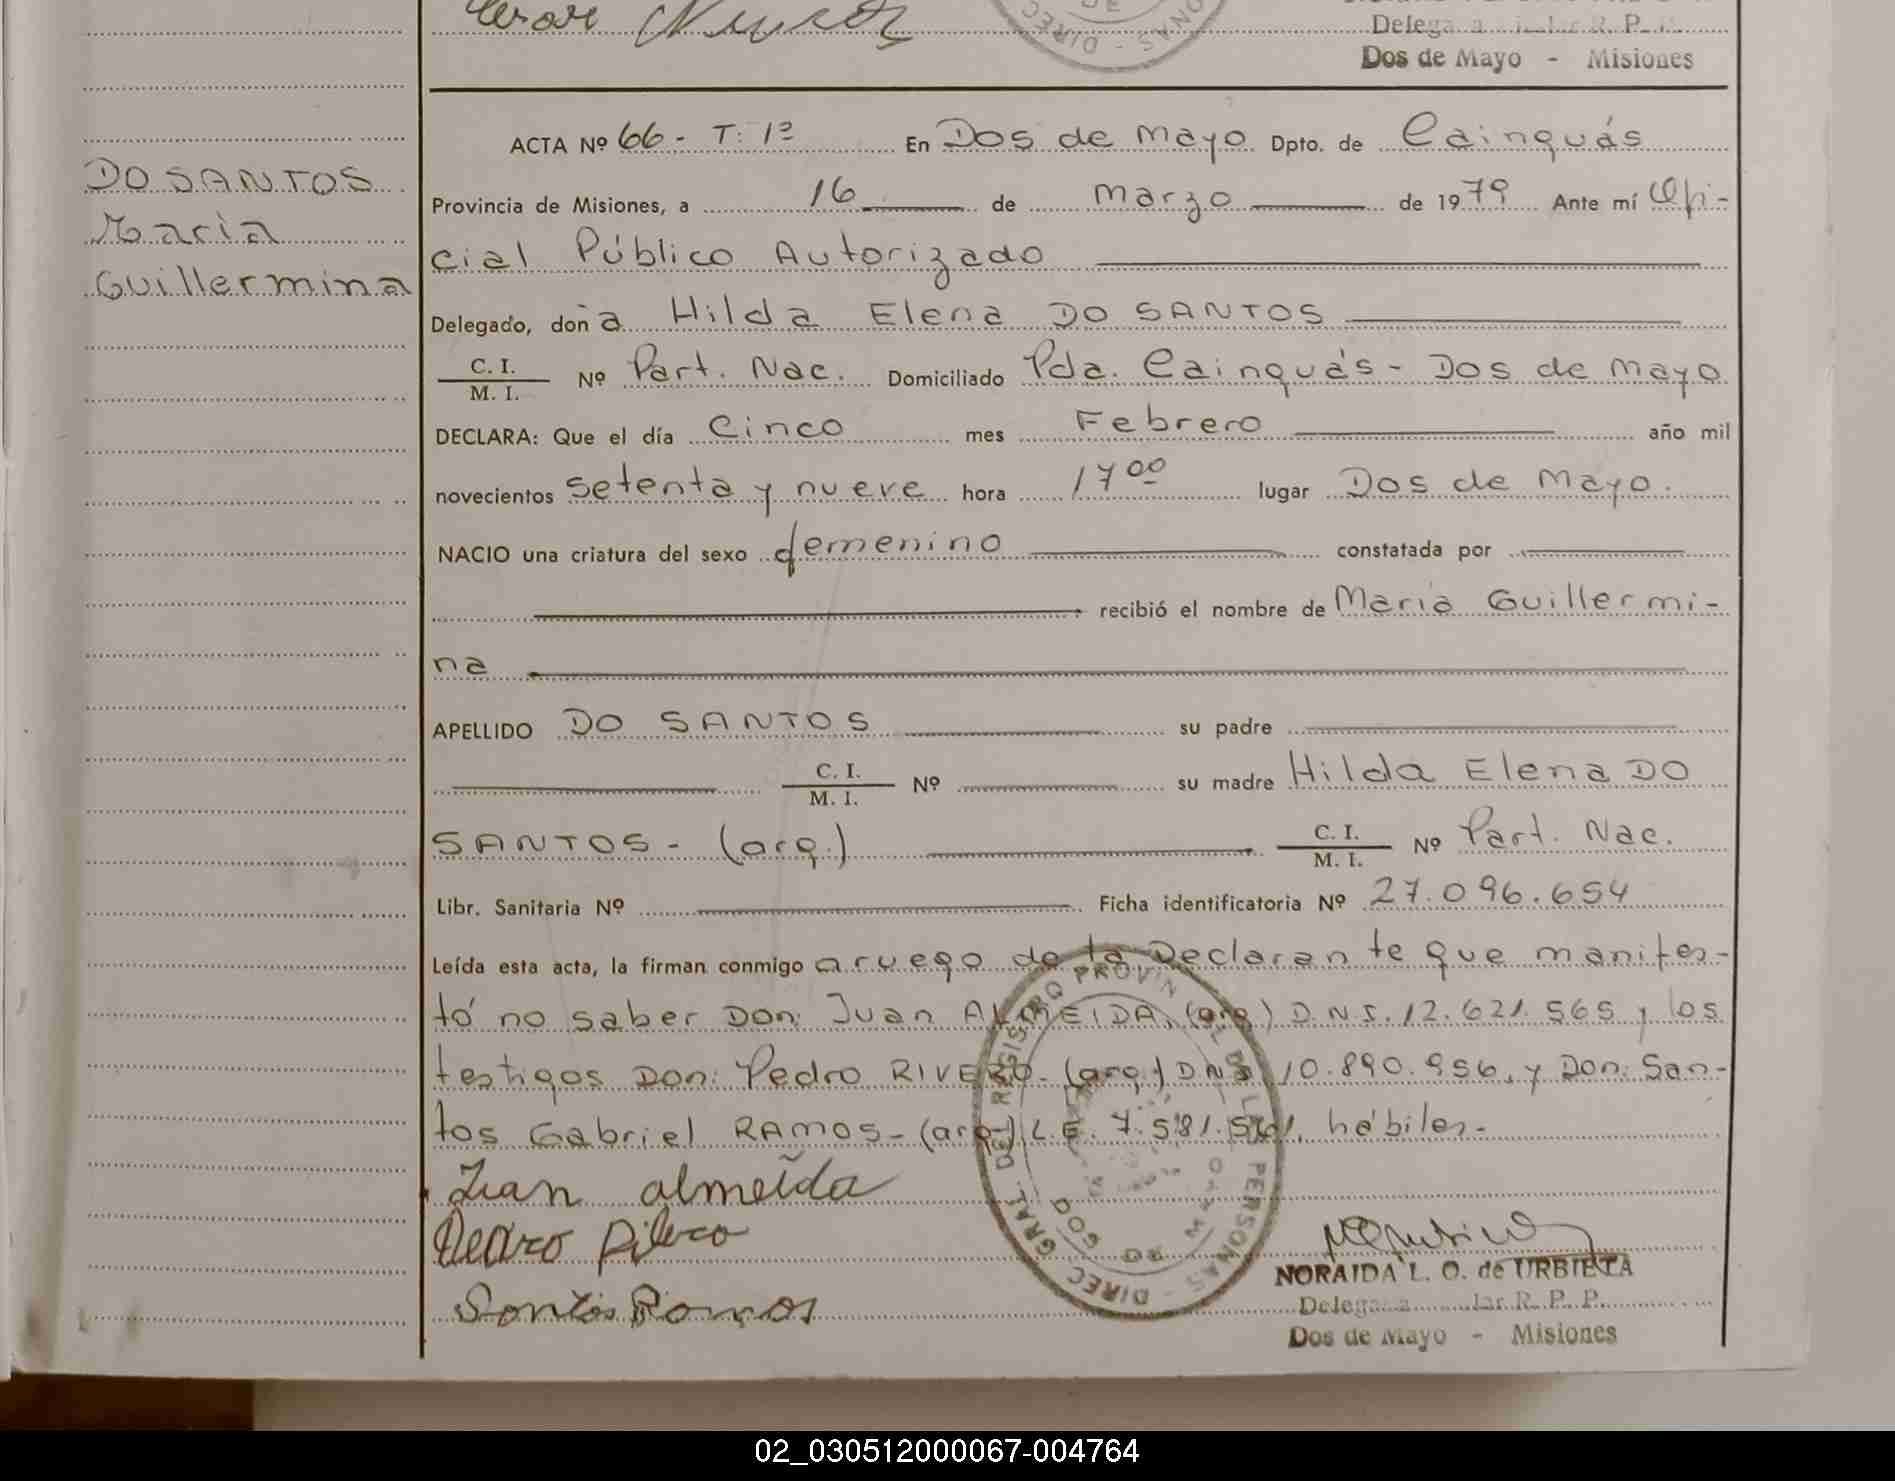 Delega
Dos de Mayo - Misiones
DO SANTOS
Maria
Guillermina
ACTA Nº 66 - T: 1º En Dos de Mayo Dpto. de Cainguás
Provincia de Misiones, a 16 de Marzo de 1979 Ante mí Ofi-
cial Público Autorizado
Delegado, don a Hilda Elena DO SANTOS
C. I.
M. I. Nº Part. Nac. Domiciliado Pda. Cainguás - Dos de Mayo
DECLARA: Que el día Cinco mes Febrero año mil
novecientos setenta y nueve hora 17 00 lugar Dos de Mayo.
NACIO una criatura del sexo femenino constatada por
recibió el nombre de Maria Guillermi-
na
APELLIDO DO SANTOS su padre
C. I.
M. I. Nº su madre Hilda Elena DO
SANTOS - (arg.) C. I.
M. I. Nº Part. Nac.
Libr. Sanitaria Nº Ficha identificatoria Nº 27.096.654
Leída esta acta, la firman conmigo a ruego de la Declarante que manifes-
tó no saber Don: Juan ALMEIDA, (arg.) D.N.I. 12.621.565 y los
testigos Don: Pedro RIVERO - (arg.) DNI 10.890.956, y Don: San-
tos Gabriel RAMOS - (arg.) L.E. 7.581. hábiles.-
Juan almeida
Santos Ramos
DIREC. GRAL. DEL REGISTRO PROVINCIAL DE LAS PERSONAS
DOS DE MAYO
NORAIDA L. O. de URBIETA
Delegada R. P. P.
Dos de Mayo - Misiones
02_030512000067-004764